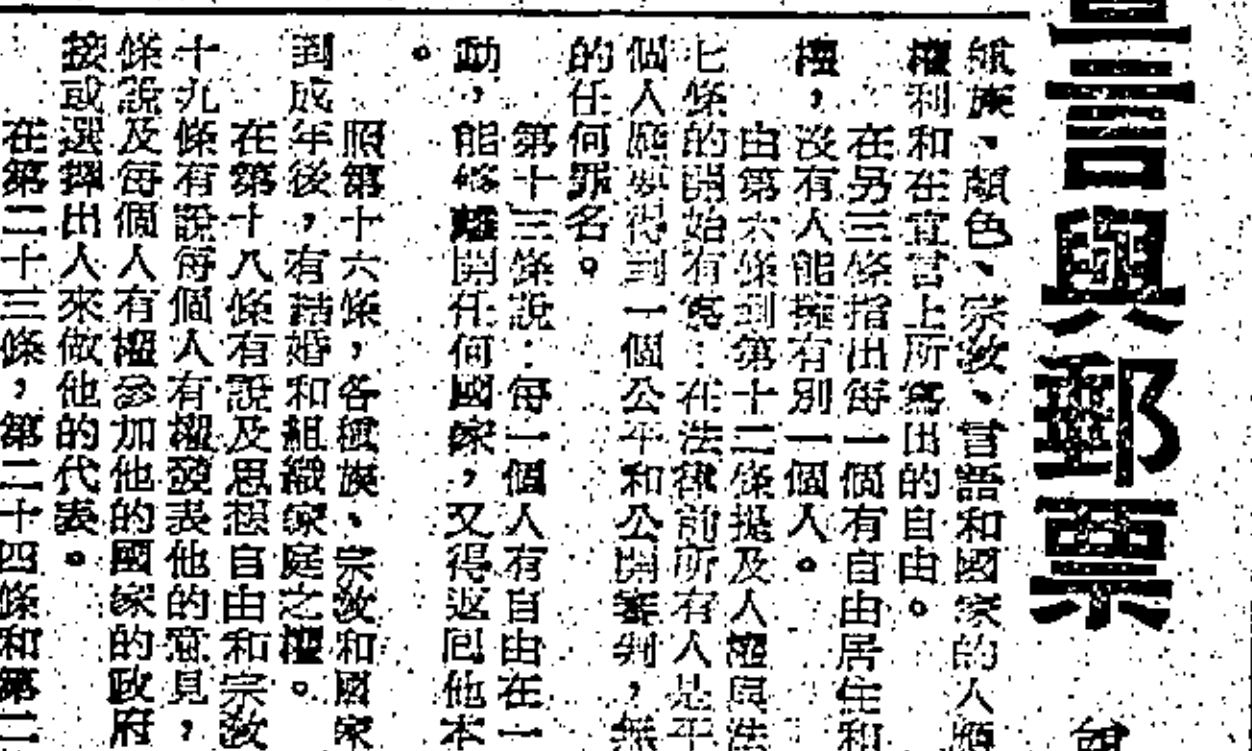 言與郵票
種族、顏色、宗教、言語和國家的人類
權利和在宣言上所寫出的自由。
在另三條指出每一個有自由居住和
權,沒有人能擁有別一個人。
由第六條到第十二條提及人權與法
七條的開始有寫:在法律前所有人是平
個人應要得到一個公平和公開審判,無
的任何罪名。
第十三條說:每一個人有自由在一
動,能夠離開任何國家,又得返回他本
。
照第十六條,各種族、宗教和國家
到成年後,有結婚和組織家庭之權。
在第十八條有說及思想自由和宗教
十九條有說每個人有權發表他的意見,
條說及每個人有權參加他的國家的政府
接或選擇出人來做他的代表。
在第二十三條,第二十四條和第二